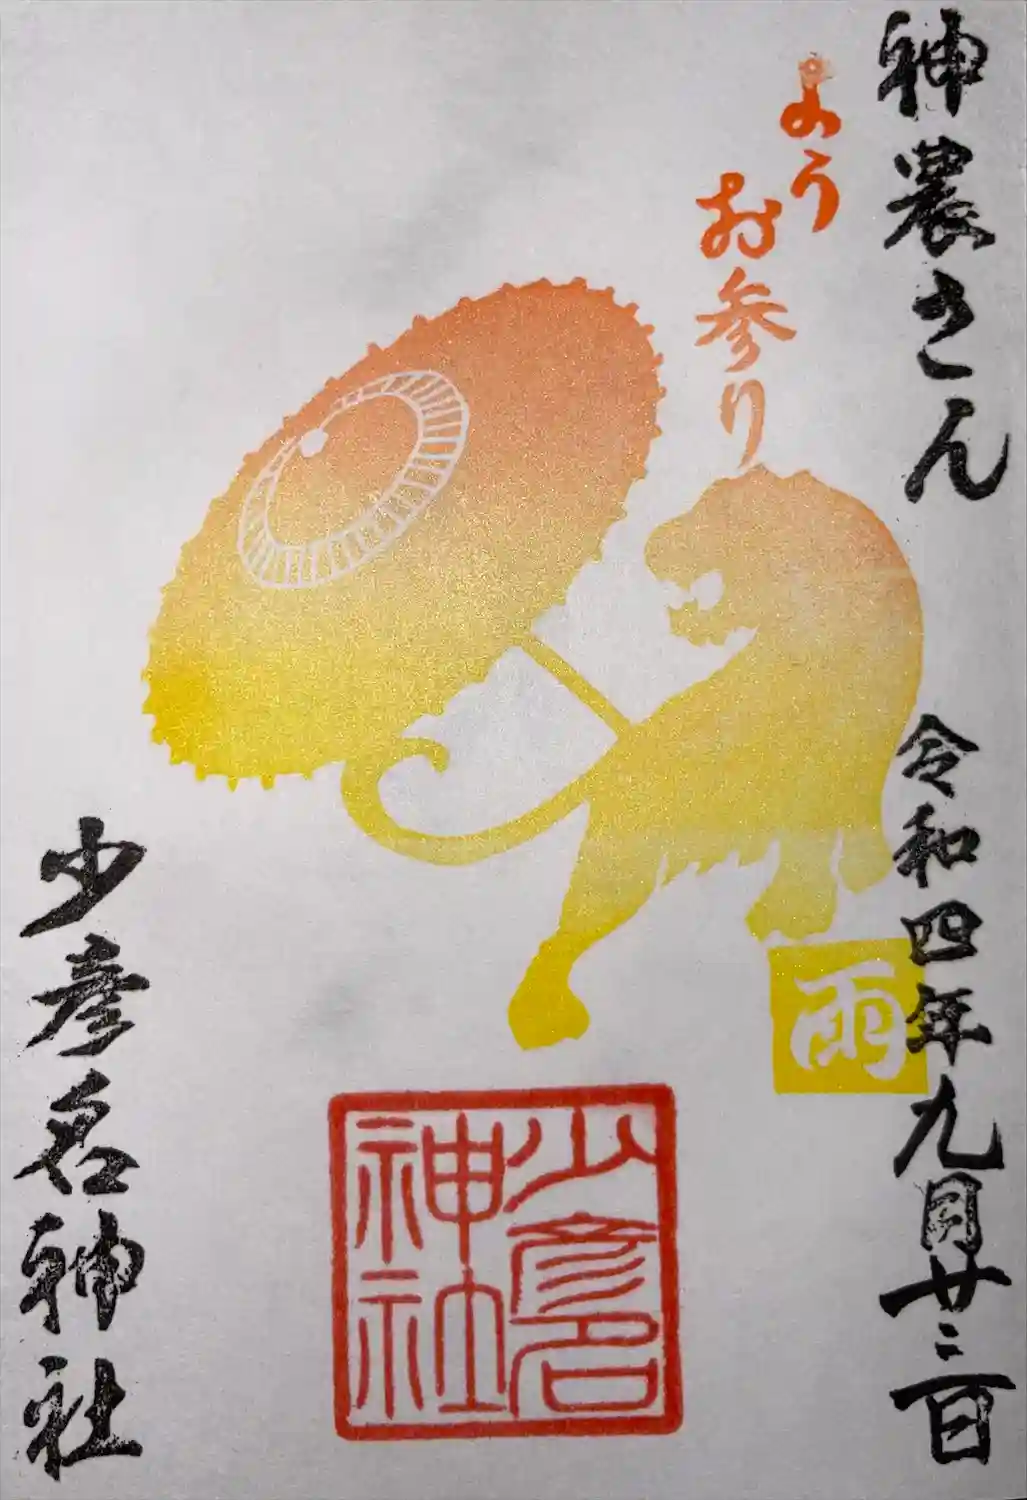 神農さん
令和四年九月廿三日
よう
お参り
雨
少彦名
神社
少彦名神社